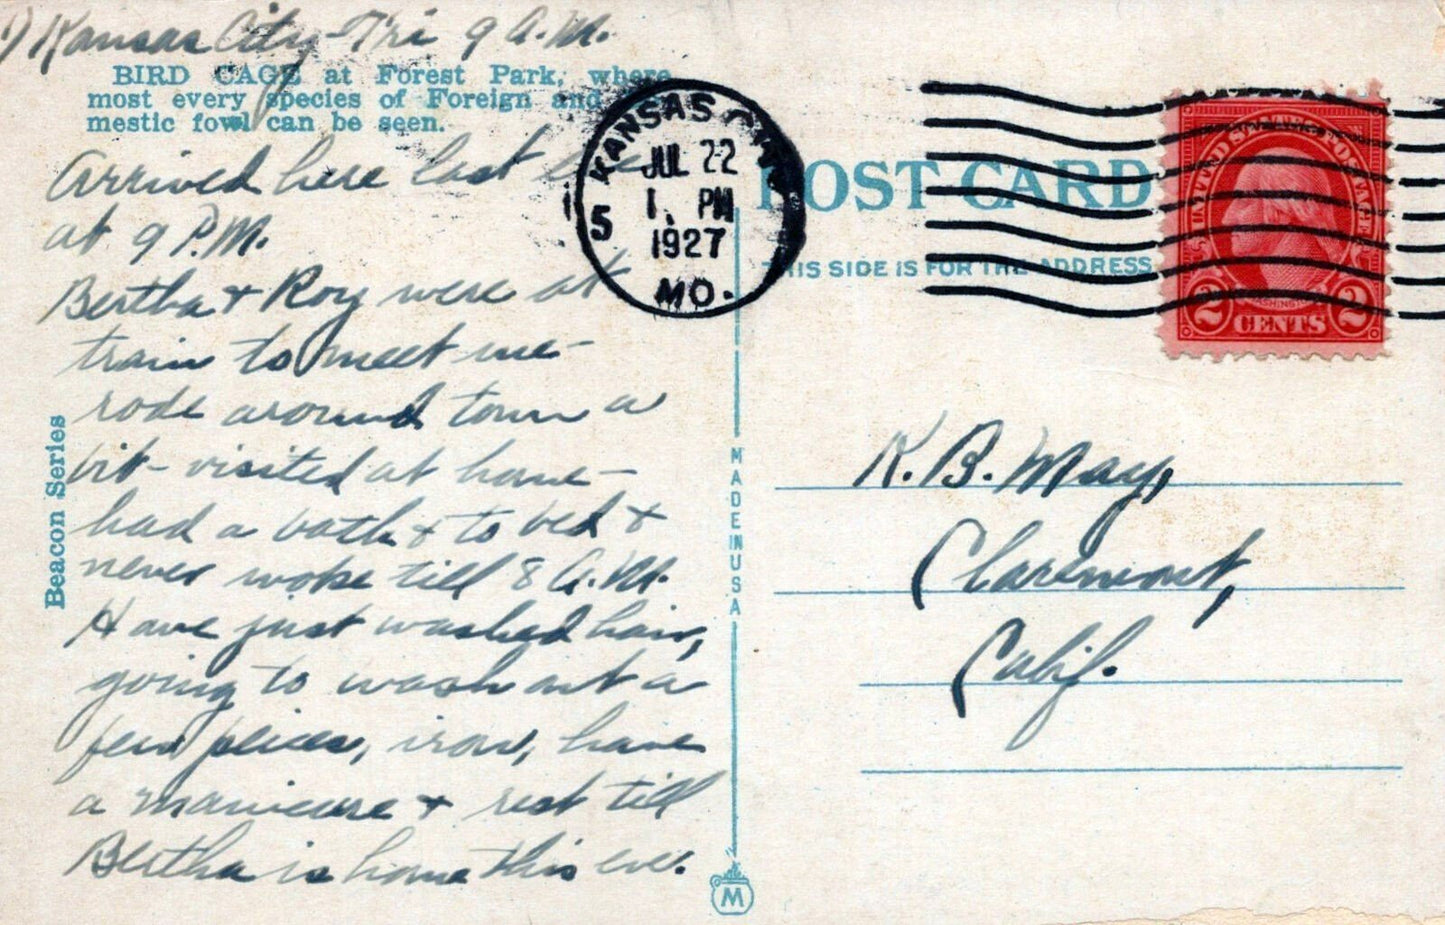 1) Kansas City - Fri 9 A.M.
BIRD CAGE at Forest Park, where
most every species of Foreign and
mestic fowl can be seen.
Arrived here last eve
at 9 P.M.
Bertha & Roy were at
train to meet me -
rode around town a
bit - visited at home -
had a bath & to bed &
never woke till 8 A.M.
Have just washed hair,
going to wash out a
few peices, iron, have
a manicure & rest till
Bertha is home this eve.
Beacon Series
MADE IN USA
M
KANSAS CITY
JUL 22
1 PM
1927
5
MO.
POST CARD
THIS SIDE IS FOR THE ADDRESS
UNITED STATES POSTAGE
WASHINGTON
2 CENTS 2
K. B. May,
Claremont,
Calif.